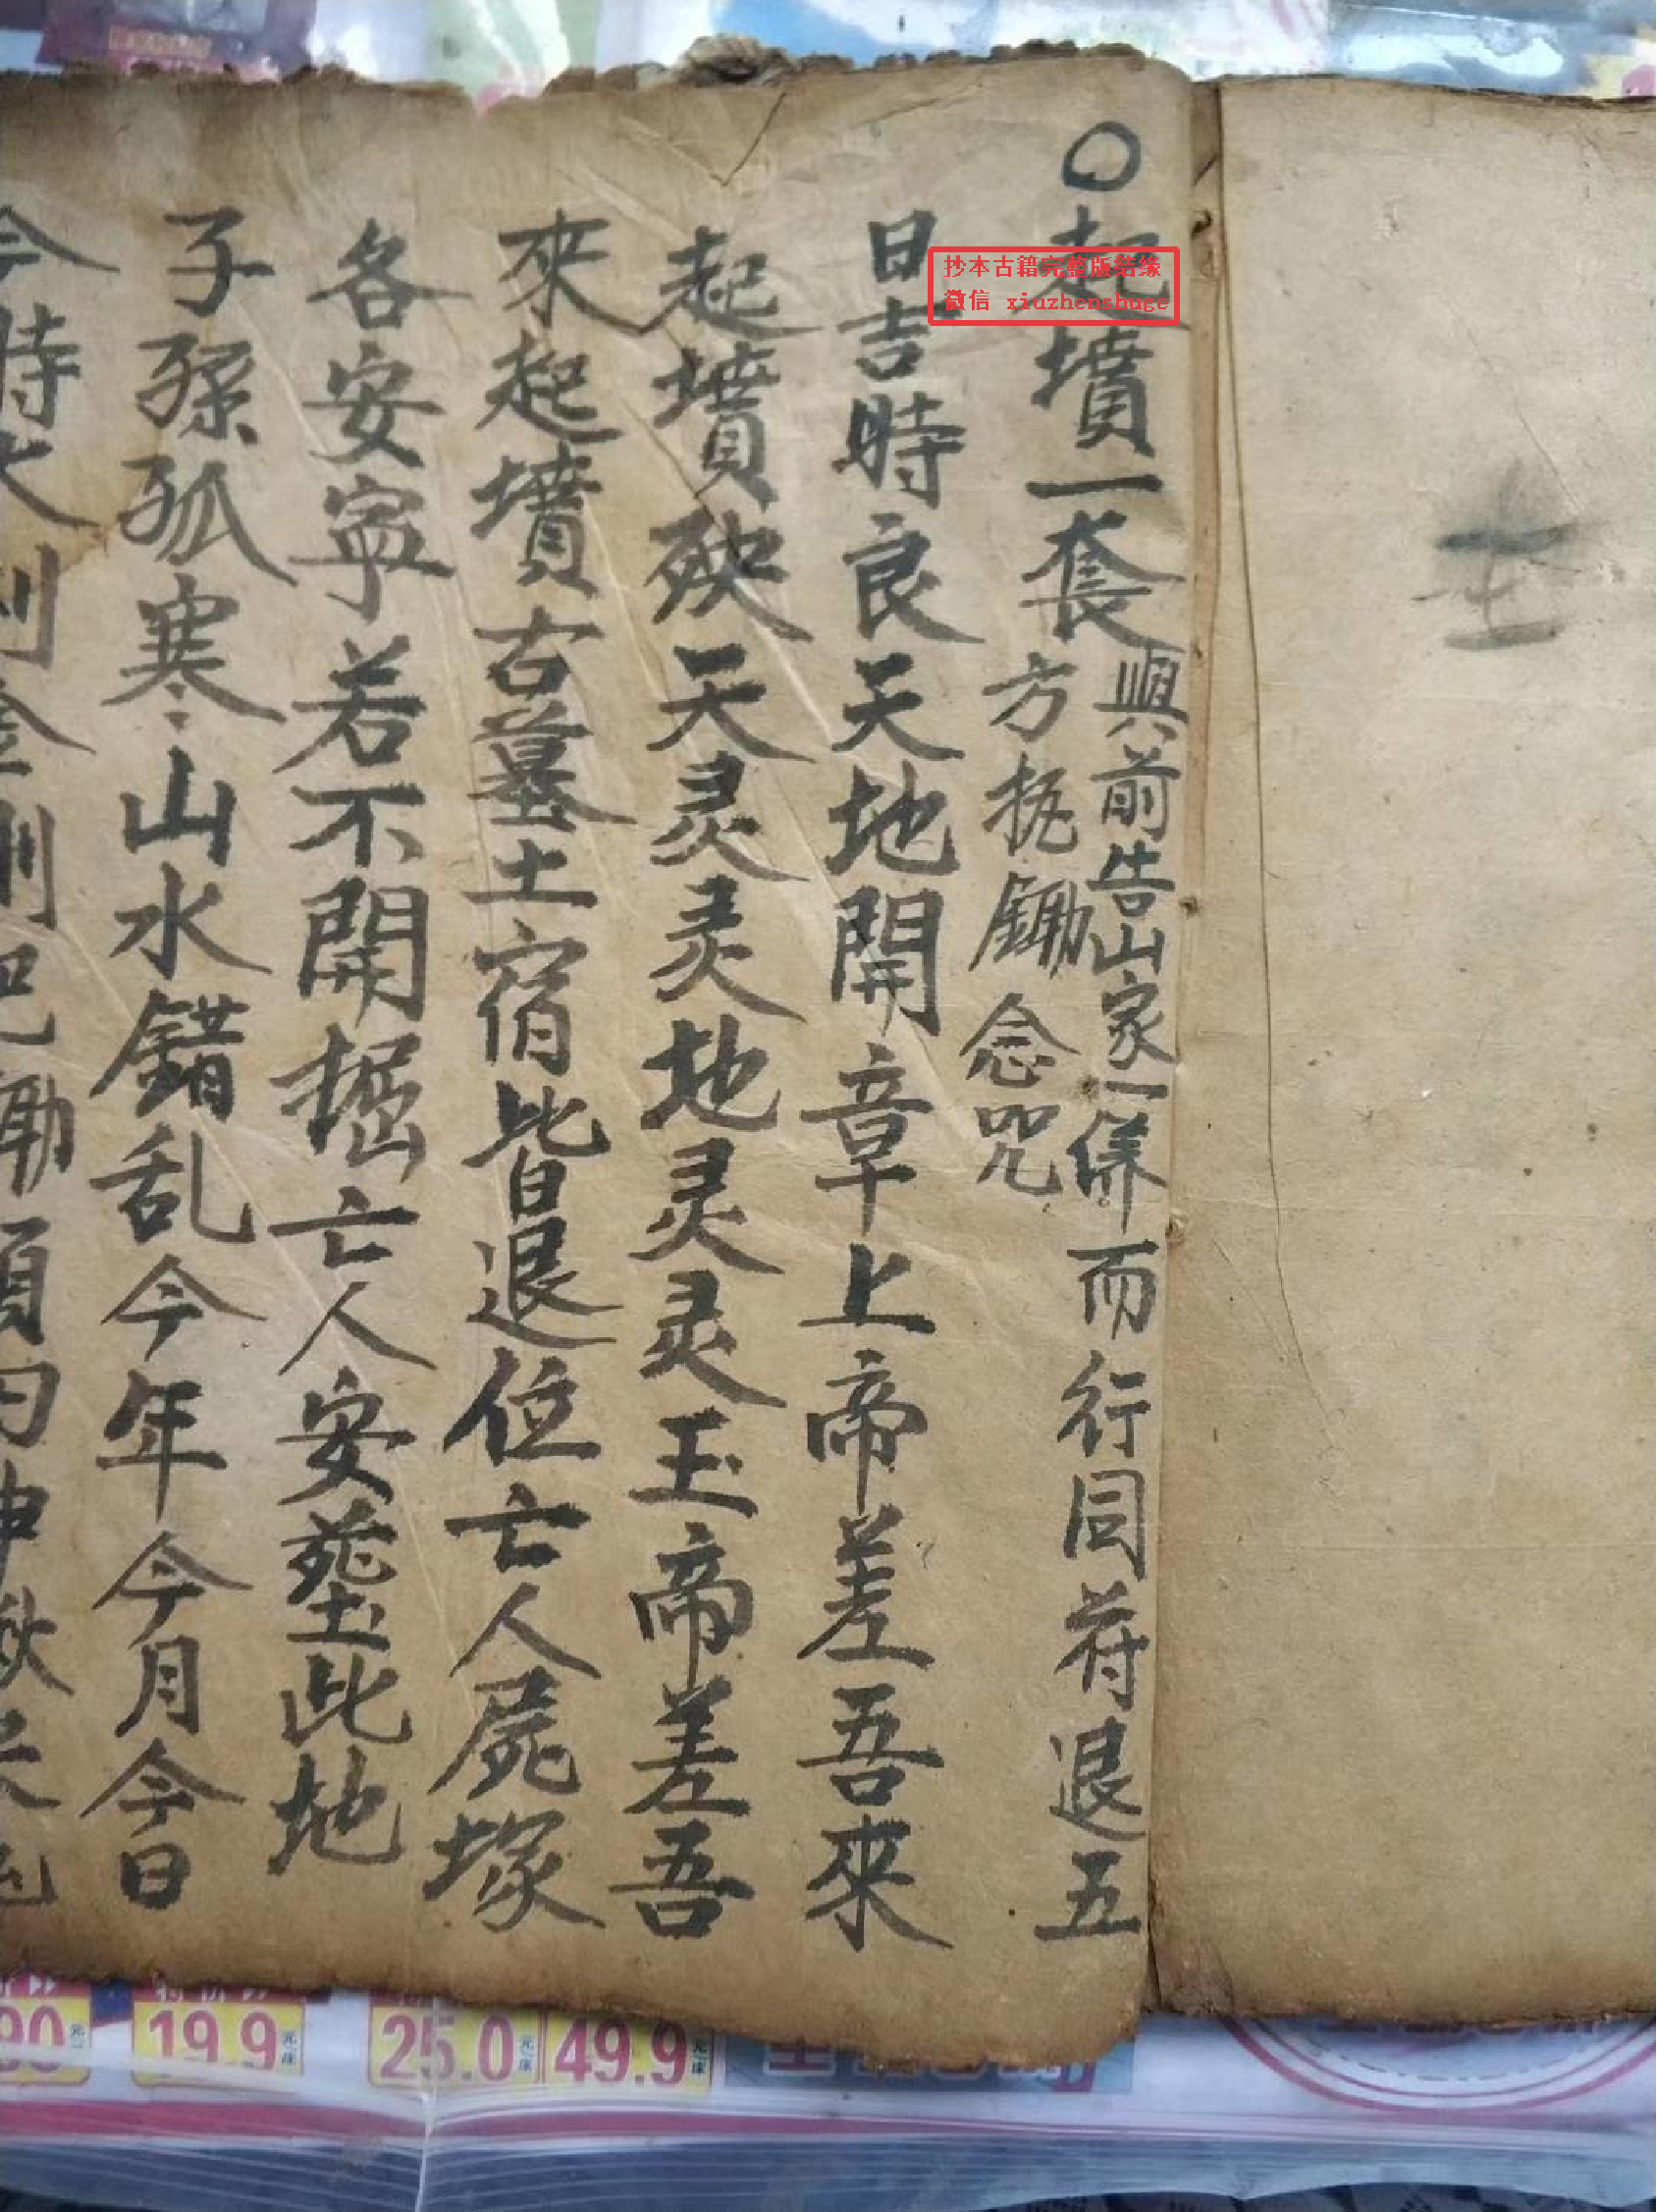 〇起墳一套
與前告山家一併而行同符退五
方执鋤念咒
日吉時良天地開章上帝差吾來
起墳殃天灵灵地灵灵玉帝差吾
來起墳古墓土宿皆退位亡人屍塚
各安寧若不開掘亡人安塟此地
子孫孤寒山水錯乱今年今月今日
今時
抄本古籍完整版结缘
微信 xiuzhenshuge
19.9
25.0
49.9